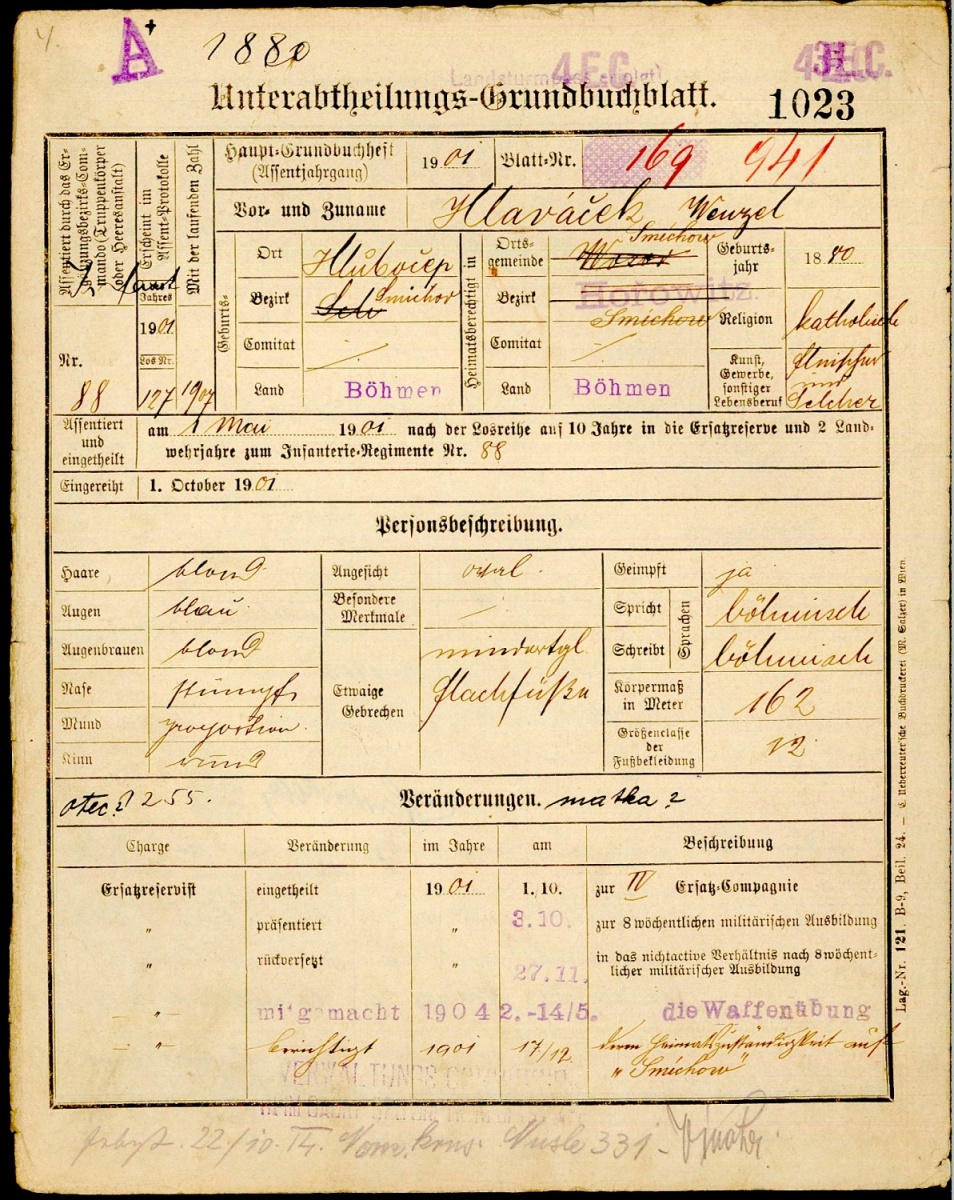 A+ 1880
4.E.C.
Landsturmpass erfolgt
Unterabtheilungs-Grundbuchblatt. 1023
Assentiert durch das Ergänzungsbezirks-Commando (Truppenkörper oder Heeresanstalt)
Nr. 88
Erscheint im Assent-Protokolle
Jahres 1901
Los Nr. 127
Mit der laufenden Zahl
Haupt-Grundbuchheft (Assentjahrgang) 1901 Blatt-Nr. 169 941
Vor- und Zuname Hlaváček Wenzel
Geburts-
Ort Hlubočep
Bezirk Smichov
Comitat ./.
Land Böhmen
Heimatsberechtigt in
Ortsgemeinde Smichow
Bezirk Horowitz.
Smichow
Comitat ./.
Land Böhmen
Geburtsjahr 1880
Religion katholisch
Kunst, Gewerbe, sonstiger Lebensberuf
und Selcher
Assentiert und eingetheilt am 1 Mai 1901 nach der Losreihe auf 10 Jahre in die Ersatzreserve und 2 Land-
wehrjahre zum Infanterie-Regimente Nr. 88
Eingereiht 1. October 1901
Personsbeschreibung.
Haare blond
Augen blau
Augenbrauen blond
Nase stumpf
Mund proportion.
Kinn rund
Angesicht oval
Besondere Merkmale ./.
Etwaige Gebrechen mindertgl
Flachfüße
Geimpft ja
Sprachen
Spricht böhmisch
Schreibt böhmisch
Körpermaß in Meter 162
Größenclasse der Fußbekleidung 12
otec? 255. Veränderungen. matka?
Charge Veränderung im Jahre am Beschreibung
Ersatzreservist eingetheilt 1901 1.10. zur IV Ersatz-Compagnie
" präsentiert " 3.10. zur 8 wöchentlichen militärischen Ausbildung
" rückversetzt " 27.11. in das nichtactive Verhältnis nach 8 wöchent-
licher militärischer Ausbildung
-"- mitgemacht 1904 2.-14/5. die Waffenübung
-"- berichtigt 1901 17/12. deren Heimatszuständigkeit auf
"Smichow"
22/10. Nusle 331
Lag.-Nr. 121. B-9, Beil. 24. — C. Ueberreuter'sche Buchdruckerei (M. Salzer) in Wien.